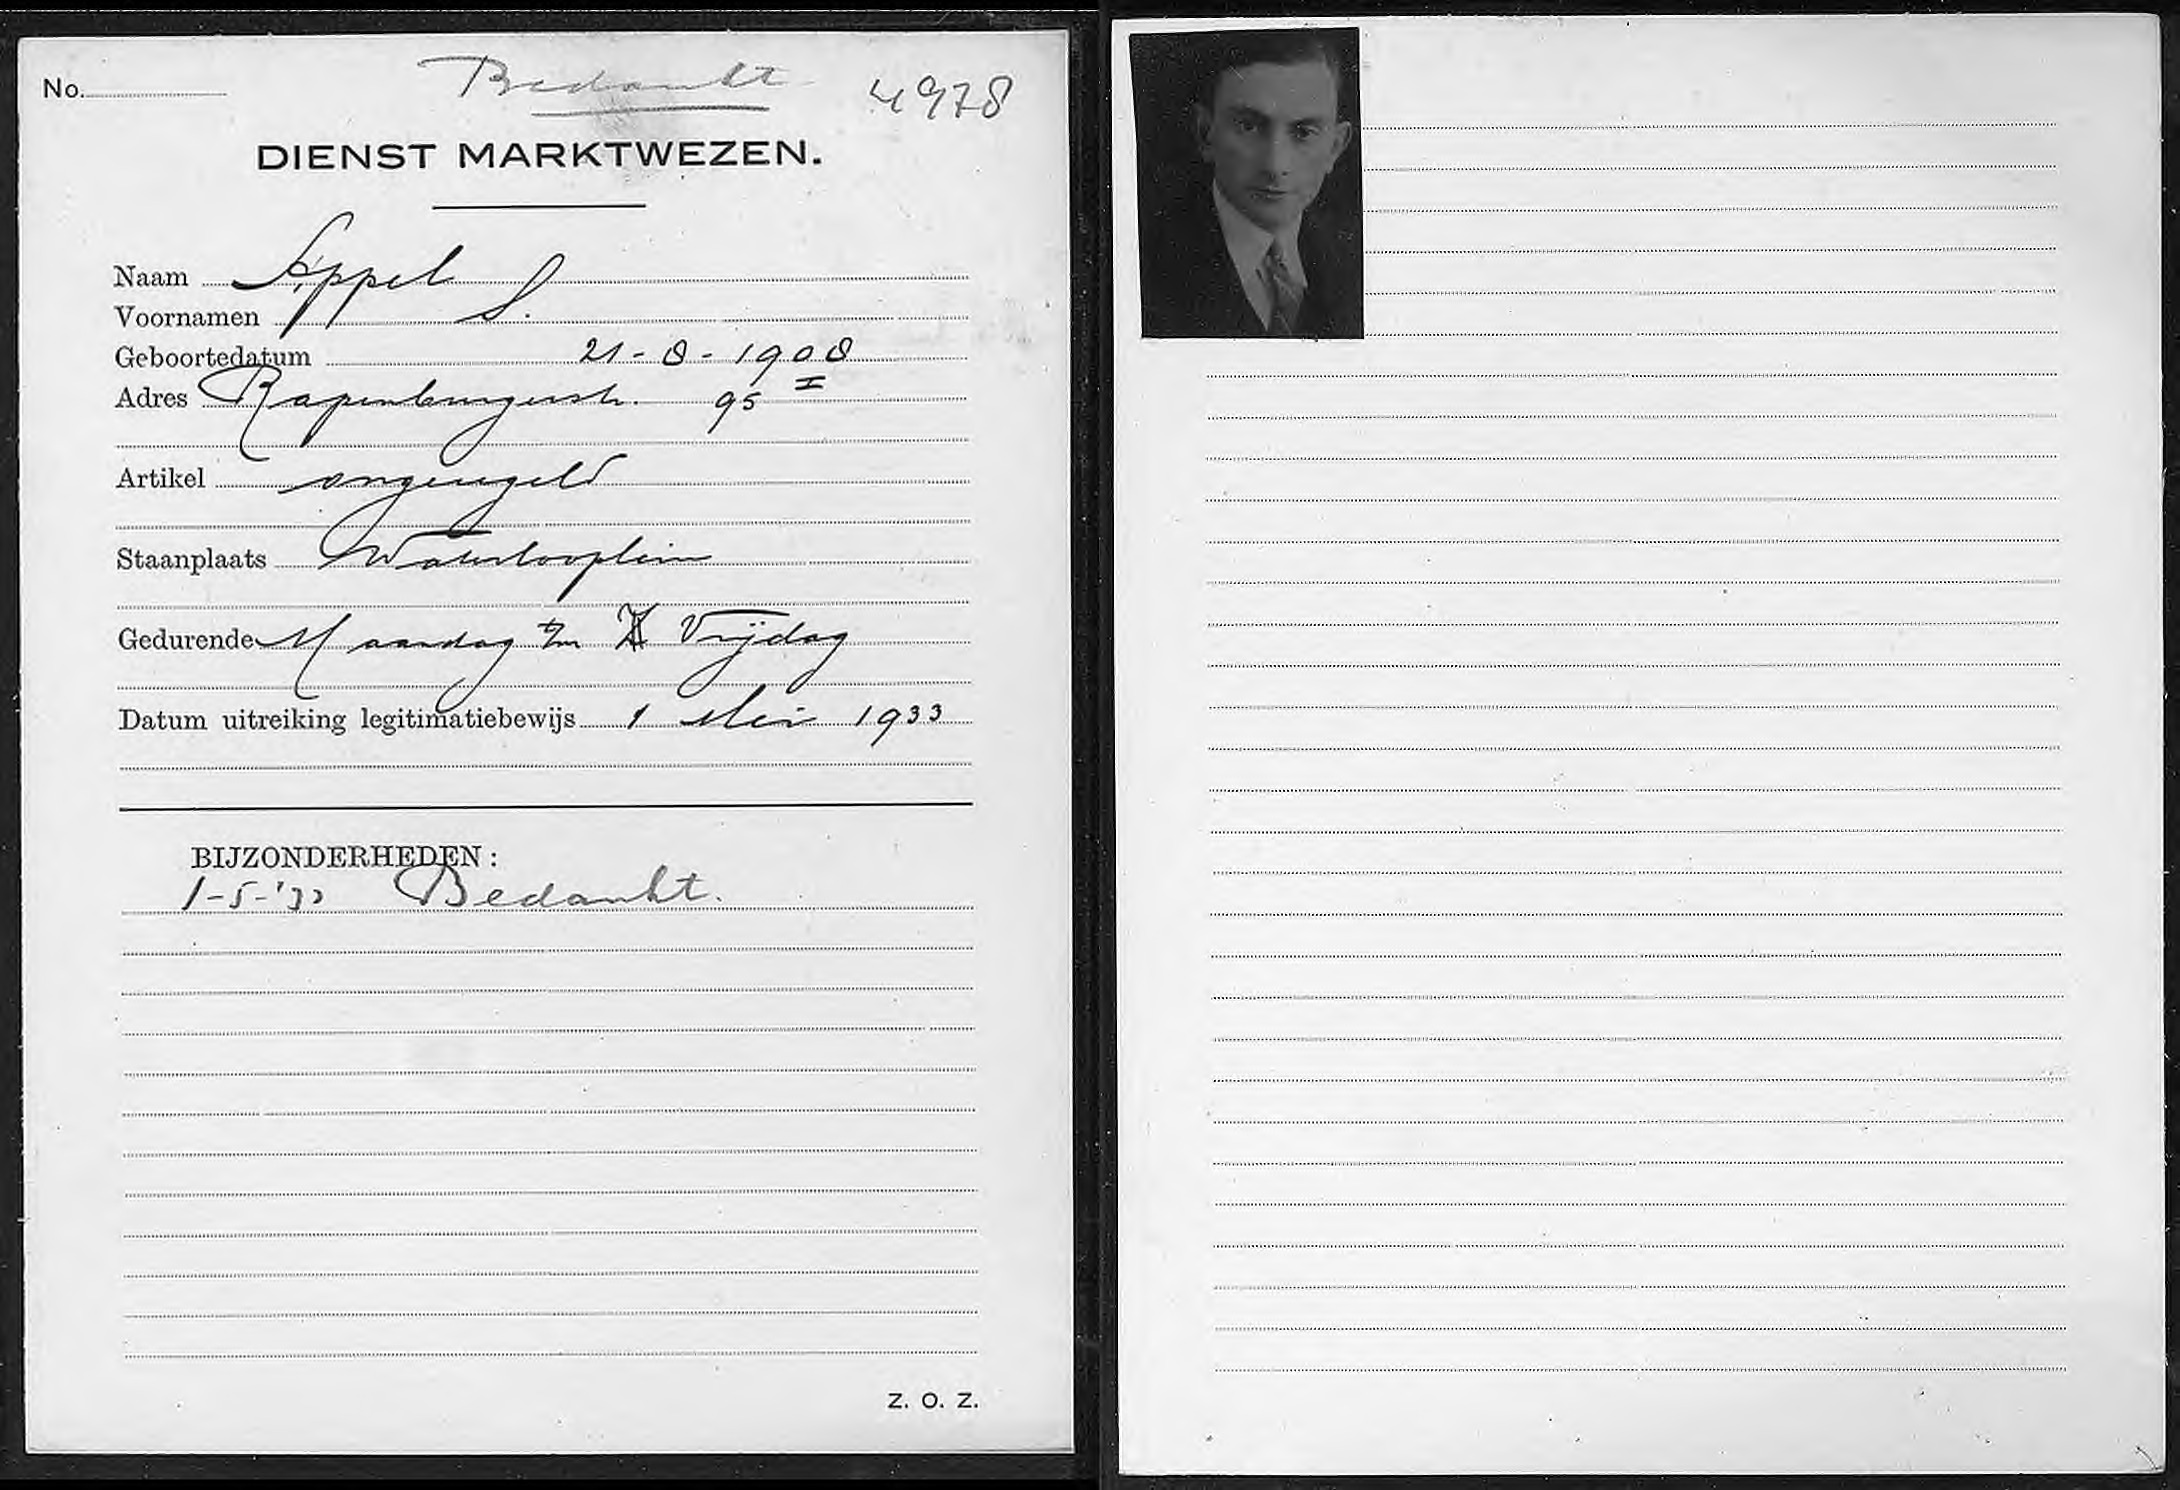 No. Bedankt 4978
DIENST MARKTWEZEN.
Naam Appel
Voornamen S.
Geboortedatum 21-8-1908
Adres Rapenburgerstr. 95 I
Artikel ongeregeld
Staanplaats Waterlooplein
Gedurende Maandag t/m Vrijdag
Datum uitreiking legitimatiebewijs 1 Mei 1933
BIJZONDERHEDEN :
1-5-'33 Bedankt.
Z. O. Z.